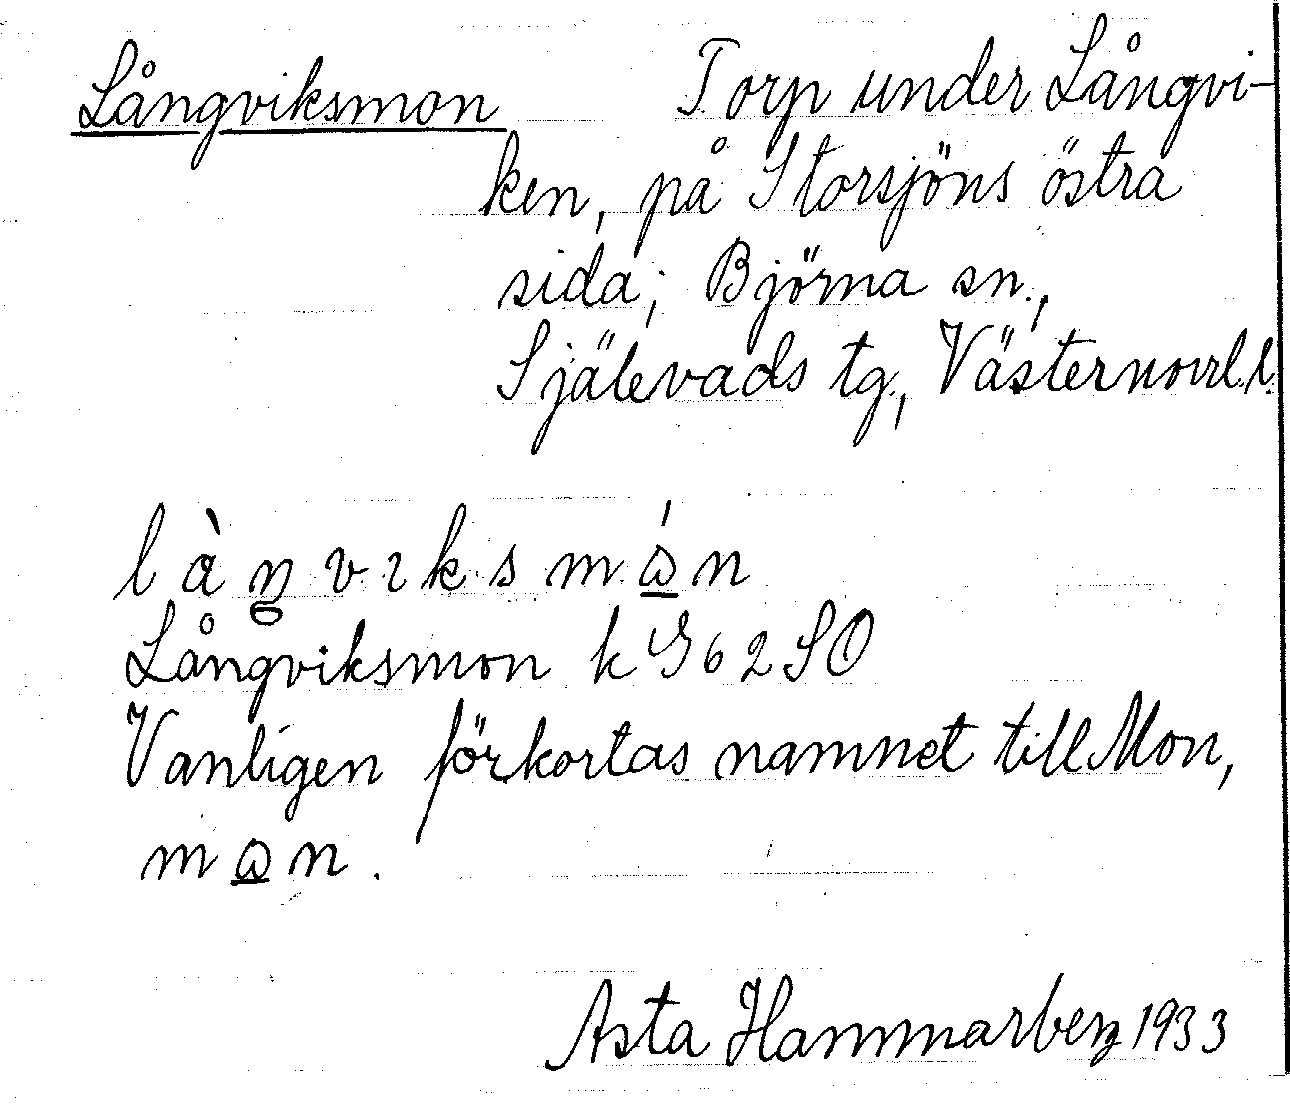 Långviksmon Torp under Långvi-
ken, på Storsjöns östra
sida; Björna sn.,
Själevads tg., Västernorrl.l.
làŋvıksmɷ́n
Långviksmon k G 62 SO
Vanligen förkortas namnet till Mon,
mɷn.
Asta Hammarberg 1933